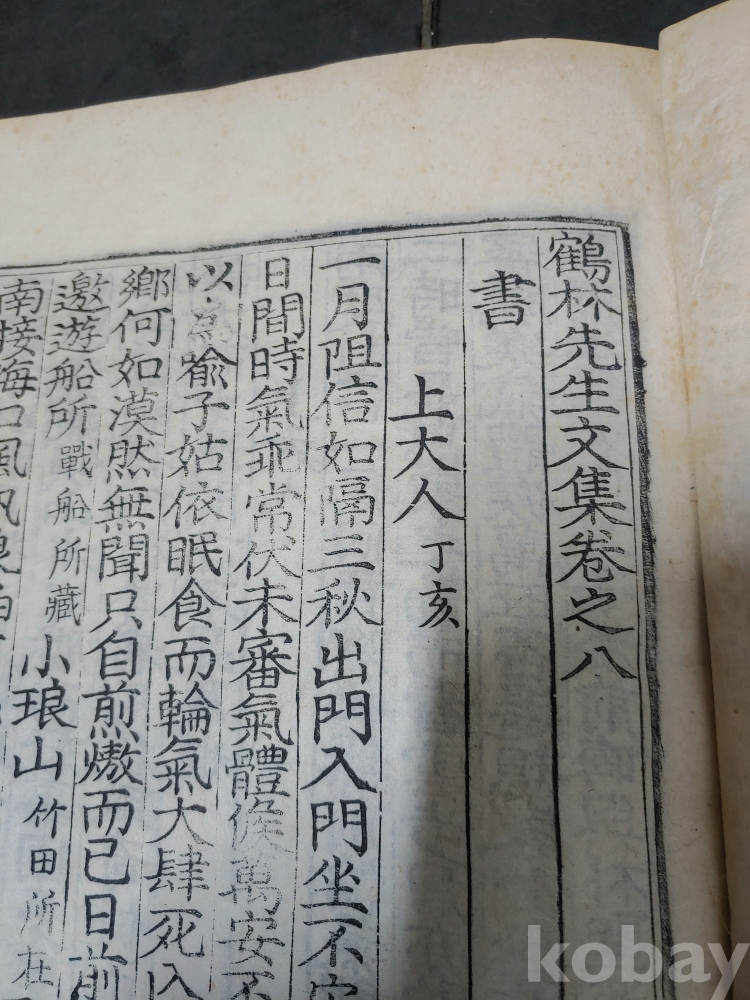 鶴林先生文集卷之八
書
上大人 丁亥
一月阻信如隔三秋出門入門坐不安
日間時氣乖常伏未審氣體候萬安不
以為喩子姑依眠食而輪氣大肆死入
鄉何如漠然無聞只自煎熬而已日前
邀遊船所戰船所藏小琅山竹田所在
南接海口風帆浪
kobay